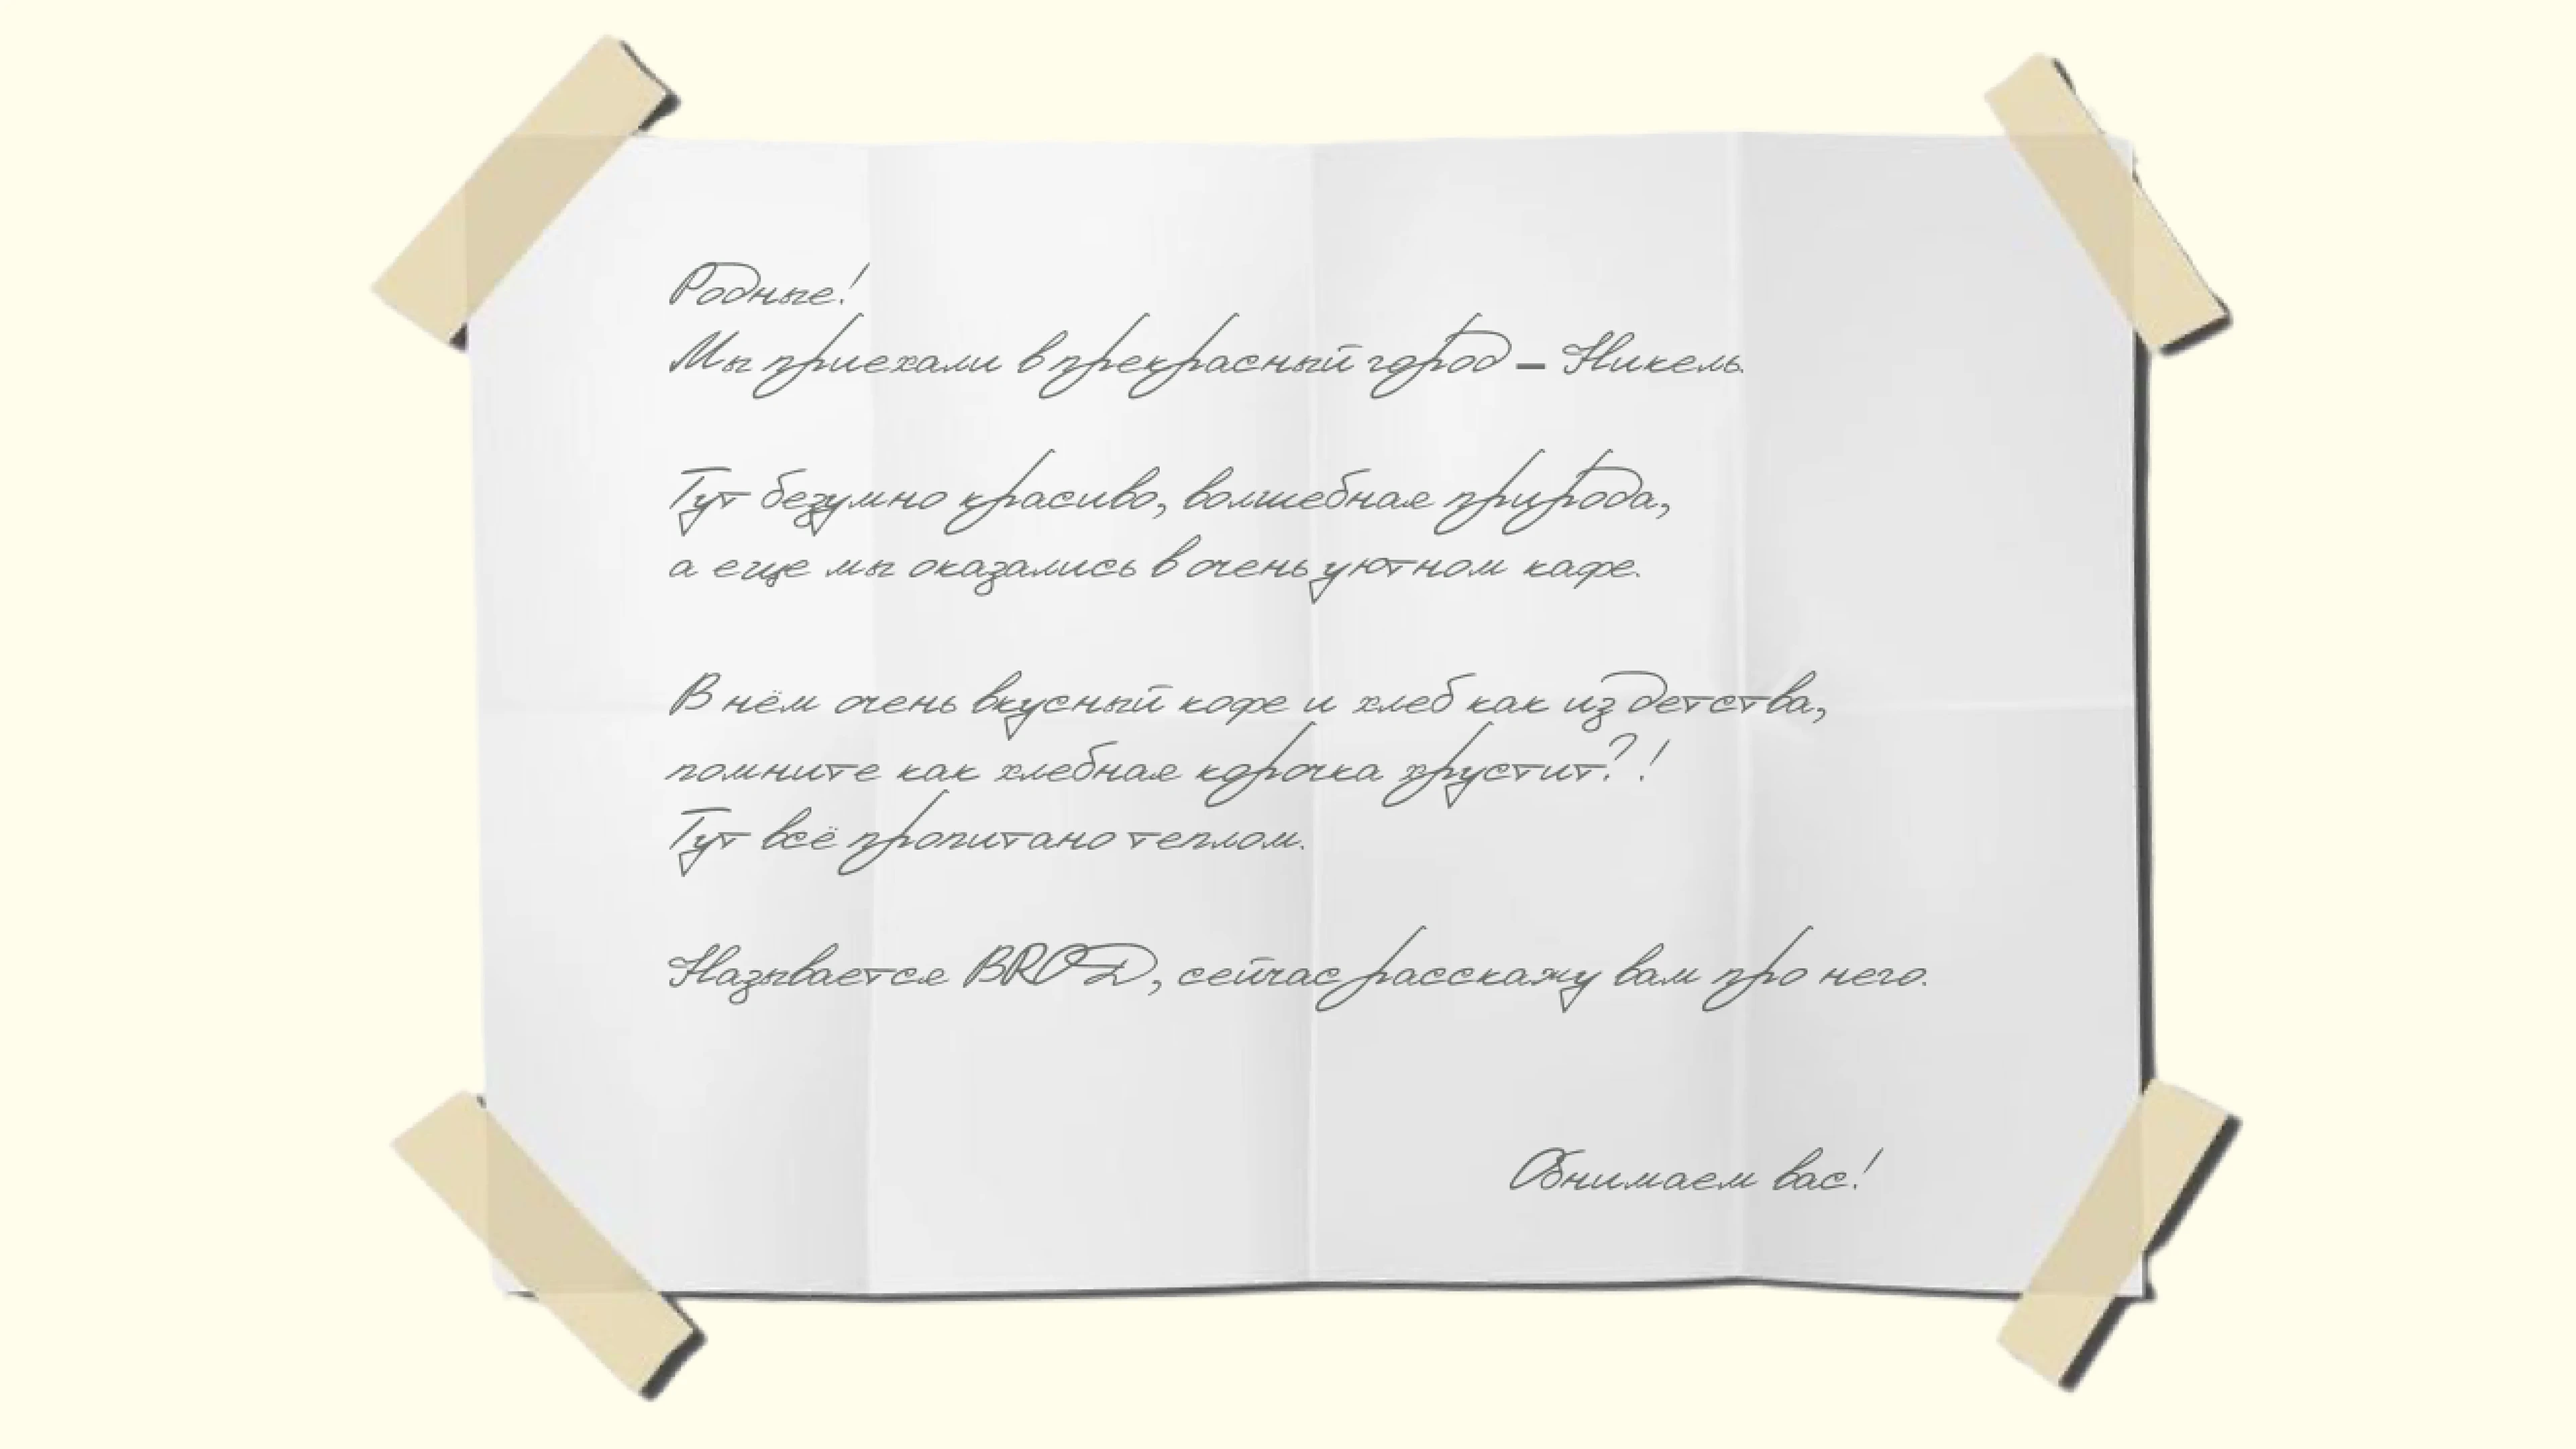 Родные!
Мы приехали в прекрасный город – Никель.
Тут безумно красиво, волшебная природа,
а еще мы оказались в очень уютном кафе.
В нём очень вкусный кофе и хлеб как из детства,
помните как хлебная корочка хрустит?!
Тут всё пропитано теплом.
Называется BROD, сейчас расскажу вам про него.
Обнимаем вас!